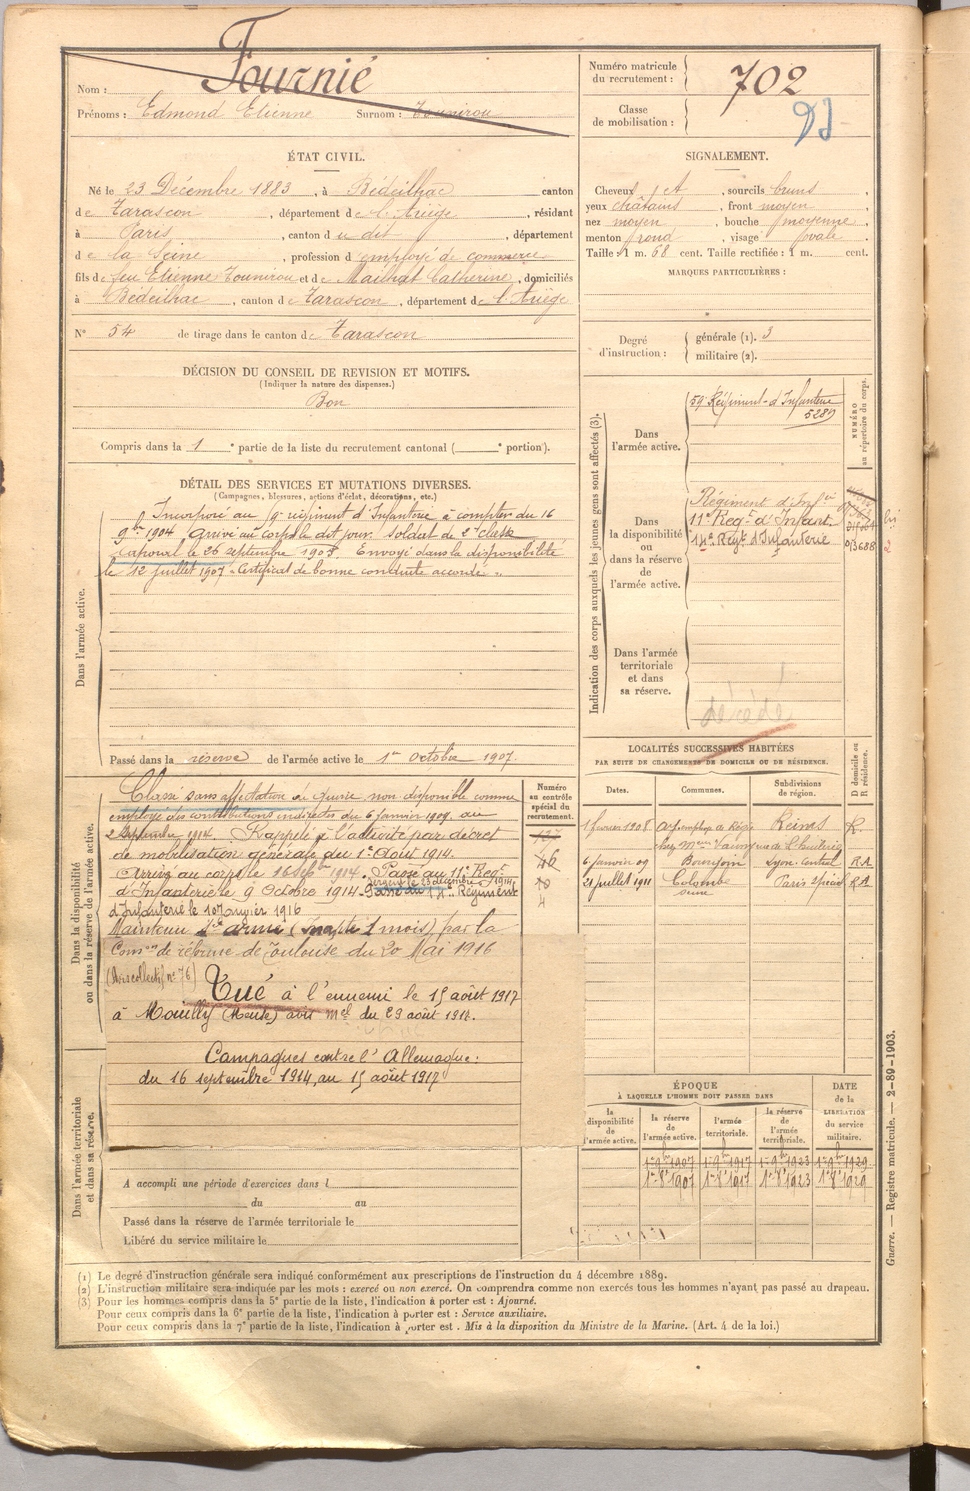 Nom : Fournié
Prénoms : Edmond Etienne Surnom : Tounirou
Numéro matricule du recrutement : 702
Classe de mobilisation :
ÉTAT CIVIL.
Né le 23 Décembre 1883, à Bédeilhac canton
de Tarascon, département de l'Ariège, résidant
à Paris, canton du dit, département
de la Seine, profession d'employé de commerce
fils de feu Etienne Tounirou et de Mailhat Catherine, domiciliés
à Bédeilhac, canton de Tarascon, département de l'Ariège
N° 54 de tirage dans le canton de Tarascon
SIGNALEMENT.
Cheveux ct, sourcils bruns,
yeux châtains, front moyen
nez moyen, bouche moyenne,
menton rond, visage ovale.
Taille : 1 m. 68 cent. Taille rectifiée : 1 m. cent.
MARQUES PARTICULIÈRES :
Degré d'instruction : générale (1). 3
militaire (2).
DÉCISION DU CONSEIL DE REVISION ET MOTIFS.
(Indiquer la nature des dispenses.)
Bon
Compris dans la 1e partie de la liste du recrutement cantonal ( e portion).
DÉTAIL DES SERVICES ET MUTATIONS DIVERSES.
(Campagnes, blessures, actions d'éclat, décorations, etc.)
Dans l'armée active.
Incorporé au régiment d'Infanterie à compter du 16
9bre 1904 arrivé au corps le dit jour. Soldat de 2e classe
Caporal le 26 septembre 1905. Envoyé dans la disponibilité
le 12 juillet 1907 "Certificat de bonne conduite accordé".
Passé dans la réserve de l'armée active le 1er octobre 1907.
Indication des corps auxquels les jeunes gens sont affectés (3).
NUMÉRO au répertoire du corps.
Dans l'armée active.
59 Régiment d'Infanterie
5289
Dans la disponibilité ou dans la réserve de l'armée active.
Régiment d'Infie
11e Regt d'Infant.
14e Regt d'Infanterie
Dans l'armée territoriale et dans sa réserve.
décédé
LOCALITÉS SUCCESSIVES HABITÉES
PAR SUITE DE CHANGEMENTS DE DOMICILE OU DE RÉSIDENCE.
Dates. Communes. Subdivisions de région. D domicile ou R résidence.
1 février 1908 Reims R.
6 janvier 09 Bourgoin Lyon Central R.A
21 juillet 1911 Colombe Seine Paris Spécial R.A
Dans la disponibilité ou dans la réserve de l'armée active.
Numéro au contrôle spécial du recrutement.
Classé sans affectation de guerre non disponible comme
employé des contributions indirectes du 6 janvier 1909 au
2 septembre 1914. Rappelé à l'activité par décret
de mobilisation générale du 1er Août 1914.
Arrivé au corps le 16 sepbre 1914. Passé au 11e Regt
d'Infanterie le 9 Octobre 1914. Sergent le 23 décembre 1914.
Passé au 14e Régiment
d'Infanterie le 10 Janvier 1916
Maintenu sce armé (Inapte 1 mois) par la
Comon de réforme de Toulouse du 20 Mai 1916
(Avis collectif n° 76) Tué à l'ennemi le 15 août 1917
à Mouilly (Meuse) avis mel du 29 août 1917.
Campagnes contre l'Allemagne :
du 16 septembre 1914 au 15 août 1917
Dans l'armée territoriale et dans sa réserve.
A accompli une période d'exercices dans l
du au
Passé dans la réserve de l'armée territoriale le
Libéré du service militaire le
ÉPOQUE
À LAQUELLE L'HOMME DOIT PASSER DANS
DATE de la LIBÉRATION du service militaire.
la disponibilité de l'armée active. la réserve de l'armée active. l'armée territoriale. la réserve de l'armée territoriale.
1er 9bre 1907 1er 9bre 1917 1er 9bre 1923 1er 9bre 1929
1er 8bre 1907 1er 8bre 1917 1er 8bre 1923 1er 8bre 1929
(1) Le degré d'instruction générale sera indiqué conformément aux prescriptions de l'instruction du 4 décembre 1889.
(2) L'instruction militaire sera indiquée par les mots : exercé ou non exercé. On comprendra comme non exercés tous les hommes n'ayant pas passé au drapeau.
(3) Pour les hommes compris dans la 5e partie de la liste, l'indication à porter est : Ajourné.
Pour ceux compris dans la 6e partie de la liste, l'indication à porter est : Service auxiliaire.
Pour ceux compris dans la 7e partie de la liste, l'indication à porter est : Mis à la disposition du Ministre de la Marine. (Art. 4 de la loi.)
Guerre. — Registre matricule. — 2-89-1903.